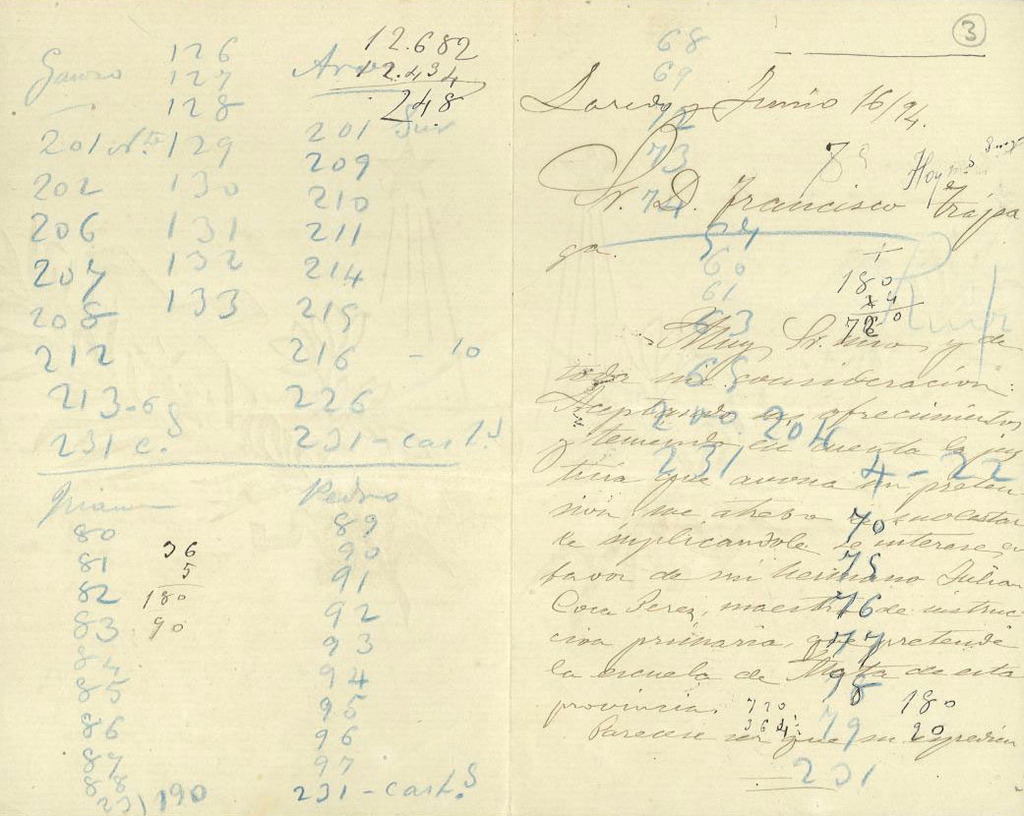 126
127
128
12.682
12.434
248
201 129
202 130
206 131
207 132
208 133
212
213-6s
231 c.s
201 Sur
209
210
211
214
215
216 - 10
226
231-cart.s
80
81
82
83
84
85
86
87
88
231 190
36
5
180
90
Pedro
89
90
91
92
93
94
95
96
97
231-cart.s
3
68
69
72
73
74
Laredo y Junio 16/94.
Sr. D. Francisco Trápa
ga.
59
60
61
63
65
180
4
720
Ruiz
Muy Sr. mio y de
toda mi consideracion:
Aceptando sus ofrecimientos
y teniendo en cuenta la jus
ticia que avona su preten
sión me atrevo a molestar
le suplicandole se interese en
favor de mi hermano Julian
Coca Perez, maestro de instruc
ción primaria, que pretende
la escuela de Mata de esta
provincia.
Parecere ser que su expedien
200 204
231 4-22
70
75
76
77
78
79
231
720
364
180
90